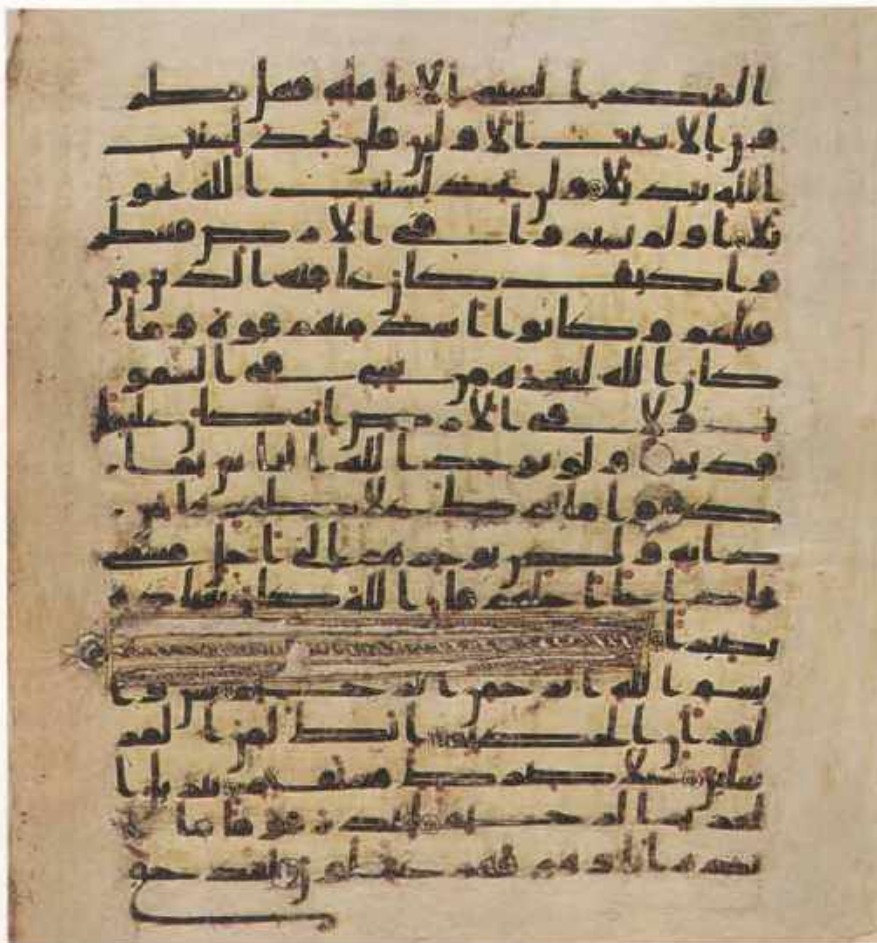 المكر السيى الا باهله فهل ينظر
ون الا سنت الاولين فلن تجد لسنت
الله تبديلا ولن تجد لسنت الله تحو
يلا اولم يسيروا في الارض فينظر
وا كيف كان عاقبه الذين من
قبلهم وكانوا اشد منهم قوة وما
كان الله ليعجزه من شي في السمو
ت ولا في الارض انه كان عليما
قديرا ولو يواخذ الله الناس بما
كسبوا ما ترك على ظهرها من
دابه ولكن يوخرهم الى اجل مسمى
فاذا جا اجلهم فان الله كان بعباده
بصيرا
بسم الله الرحمن الرحيم يس وا
لقران الحكيم انك لمن المر
سلين على صرط مستقيم تنزيل ا
لعزيز الرحيم لتنذر قوما ما
انذر اباوهم فهم غفلون لقد حق